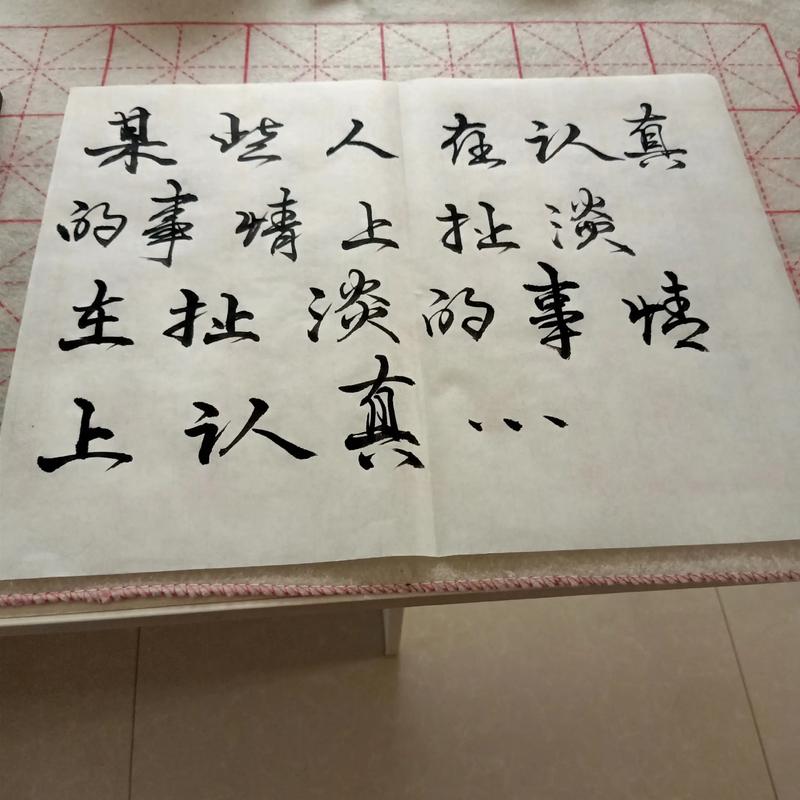 某些人在认真
的事情上扯淡
在扯淡的事情
上认真…